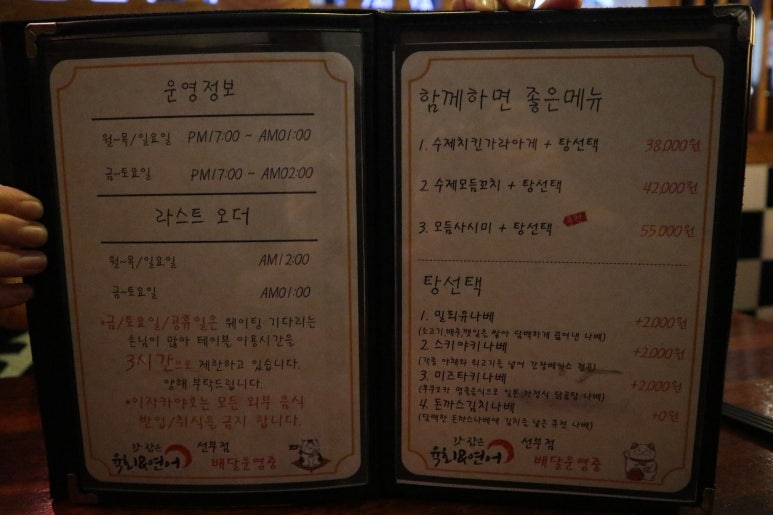 운영정보
월~목/일요일 PM17:00 ~ AM01:00
금~토요일 PM17:00 ~ AM02:00
라스트 오더
월~목/일요일 AM12:00
금~토요일 AM01:00
*금/토요일/공휴일은 웨이팅 기다리는
손님이 많아 테이블 이용시간을
3시간으로 제한하고 있습니다.
양해 부탁드립니다.
*이자카야호는 모든 외부 음식
반입/취식을 금지 합니다.
갓 잡은 육회&연어 선부점
배달운영중
함께하면 좋은메뉴
1. 수제치킨가라아게 + 탕선택 38,000원
2. 수제모듬꼬치 + 탕선택 42,000원
3. 모듬사시미 + 탕선택 추천 55,000원
탕선택
1. 밀푀유나베 +2,000원
(소고기,배추,깻잎을 쌓아 담백하게 끓여낸 나베)
2. 스키야키나베 +2,000원
(각종 야채와 쇠고기를 넣어 간장베이스 전골)
3. 미즈타키나베 +2,000원
(후쿠오카 명물음식으로 일본 가정식 닭곰탕 나베)
4. 돈까스김치나베 +0원
(담백한 돈까스나베에 김치를 넣은 퓨전 나베)
갓 잡은 육회&연어 선부점
배달운영중